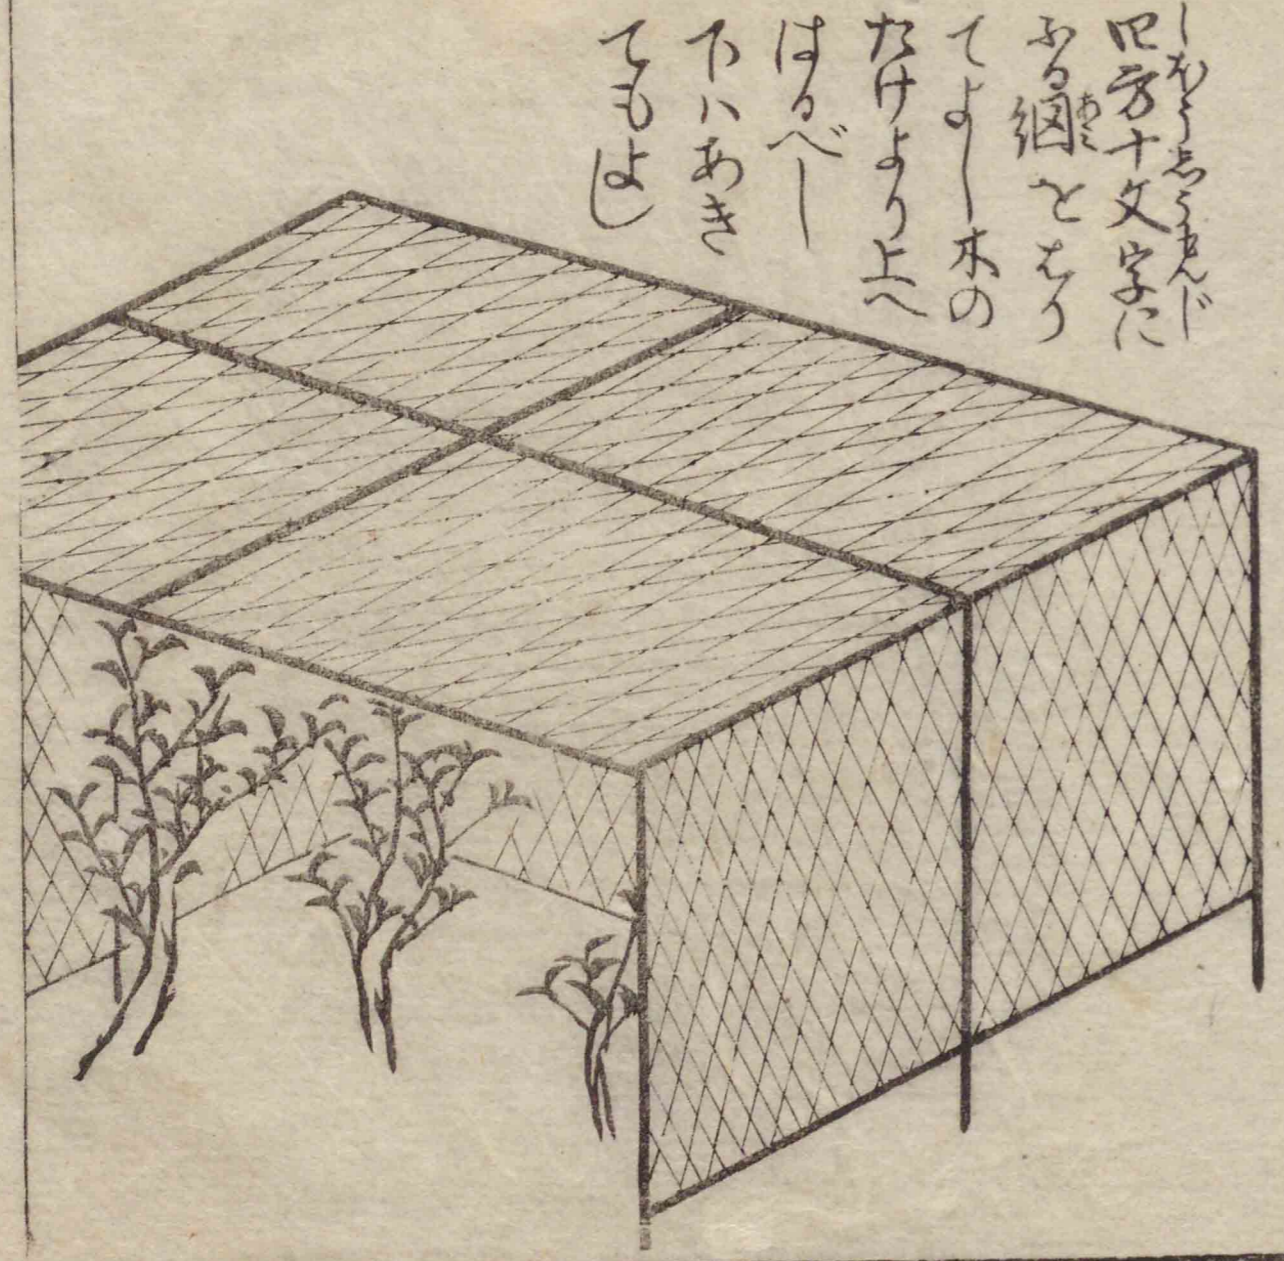 しほうしうもんじ
四方十文字に
あみ
ふる網をはり
てよし木の
たけより上へ
はるべし
下ハあき
てもよし